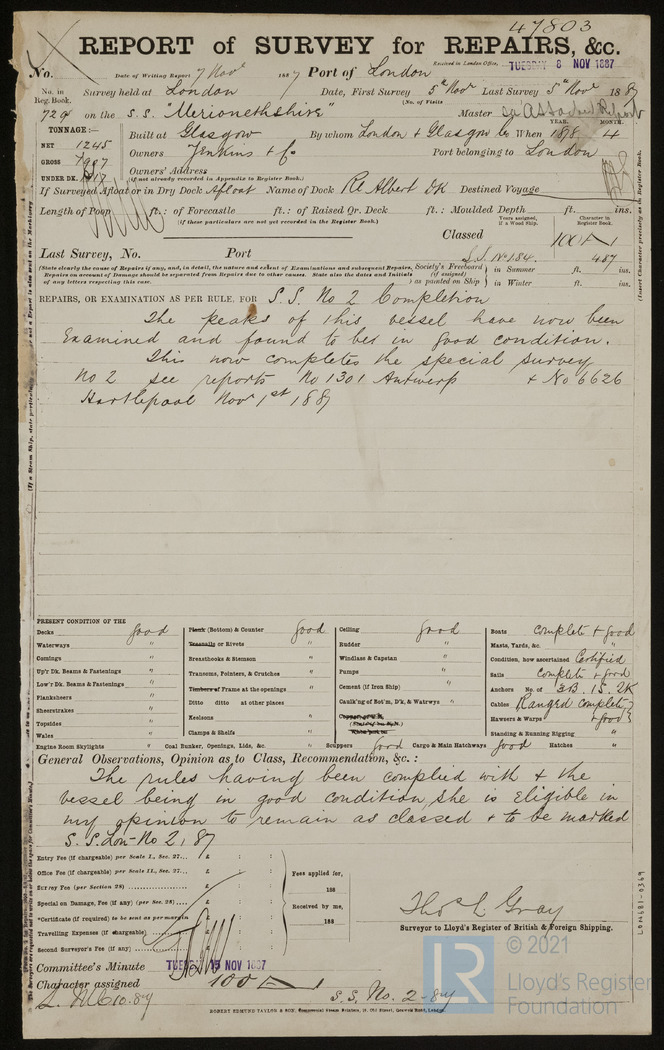 47803
REPORT of SURVEY for REPAIRS, &c.
No. Date of Writing Report 7 Novr 1887 Port of London Received in London Office, TUESDAY 8 NOV 1887
No. in Reg. Book. Survey held at London Date, First Survey 5th Novr Last Survey 5th Novr 1887
(No. of Visits
729 on the S.S. "Merionethshire" Master
TONNAGE:— YEAR. MONTH.
NET 1245 Built at Glasgow By whom London & Glasgow Co When 1878 4
GROSS Owners Jenkins & Co Port belonging to London
UNDER DK. Owners' Address
(if not already recorded in Appendix to Register Book.)
If Surveyed Afloat or in Dry Dock Afloat Name of Dock Rl Albert Dk Destined Voyage
Length of Poop ft.: of Forecastle ft.: of Raised Qr. Deck ft.: Moulded Depth ft. ins.
(if these particulars are not yet recorded in the Register Book.)
Years assigned, if a Wood Ship. Character in Register Book.
Classed 100 A 1
Last Survey, No. Port
(State clearly the cause of Repairs if any, and, in detail, the nature and extent of Examinations and subsequent Repairs,
Repairs on account of Damage should be separated from Repairs due to other causes. State also the dates and Initials
of any letters respecting this case.
Society's Freeboard (if assigned) as painted on Ship in Summer ft. ins.
in Winter ft. ins.
REPAIRS, OR EXAMINATION AS PER RULE, FOR S.S. No 2 Completion
The peaks of this vessel have now been
examined and found to be in good condition.
This now completes the special survey
No 2 see reports No 1301 Antwerp & No 6626
Hartlepool Novr 1st 1887
PRESENT CONDITION OF THE
Decks good
Waterways "
Comings "
Up'r Dk. Beams & Fastenings "
Low'r Dk. Beams & Fastenings "
Planksheers "
Sheerstrakes "
Topsides "
Wales "
Engine Room Skylights "
Plank (Bottom) & Counter good
Treenails or Rivets "
Breasthooks & Stemson "
Transoms, Pointers, & Crutches "
Timbers of Frame at the openings "
Ditto ditto at other places "
Keelsons "
Clamps & Shelfs "
Coal Bunker, Openings, Lids, &c. "
Ceiling good
Rudder "
Windlass & Capstan "
Pumps "
Cement (if Iron Ship) "
Caulk'ng of Bot'm, D'k, & Watrwys "
Scuppers good Cargo & Main Hatchways good Hatches "
Boats complete & good
Masts, Yards, &c. "
Condition, how ascertained Certified
Sails complete & good
Anchors No. of 3B. 1S. 2K
Cables Ranged complete
Hawsers & Warps & good
Standing & Running Rigging "
General Observations, Opinion as to Class, Recommendation, &c.:
The rules having been complied with & the
vessel being in good condition she is eligible in
my opinion to remain as classed & to be marked
S.S. Lon- No 2, 87
Entry Fee (if chargeable) per Scale I., Sec. 27... £ : :
Office Fee (if chargeable) per Scale II., Sec. 27... £ : :
Survey Fee (per Section 28) £ : :
Special on Damage, Fee (if any) (per Sec. 28) £ : :
*Certificate (if required) to be sent as per margin
Travelling Expenses (if chargeable) £ : :
Second Surveyor's Fee (if any) £ : :
Fees applied for,
188
Received by me,
188
Thos L. Gray
Surveyor to Lloyd's Register of British & Foreign Shipping.
Committee's Minute TUESDAY 15 NOV 1887
Character assigned 100 A 1
S.S. No. 2-87
ROBERT EDMUND TAYLOR & SON,
LON681-0369
LR © 2021
Lloyd's Register
Foundation